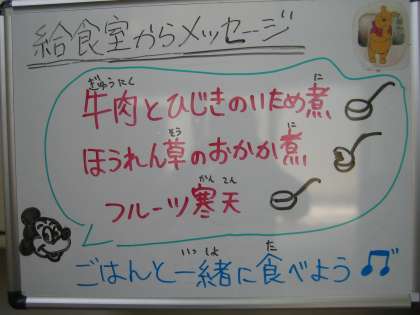 給食室からメッセージ
牛肉とひじきのいため煮
ぎゅうにく に
ほうれん草のおかか煮
そう に
フルーツ寒天
かん てん
ごはんと一緒に食べよう
いっしょ た